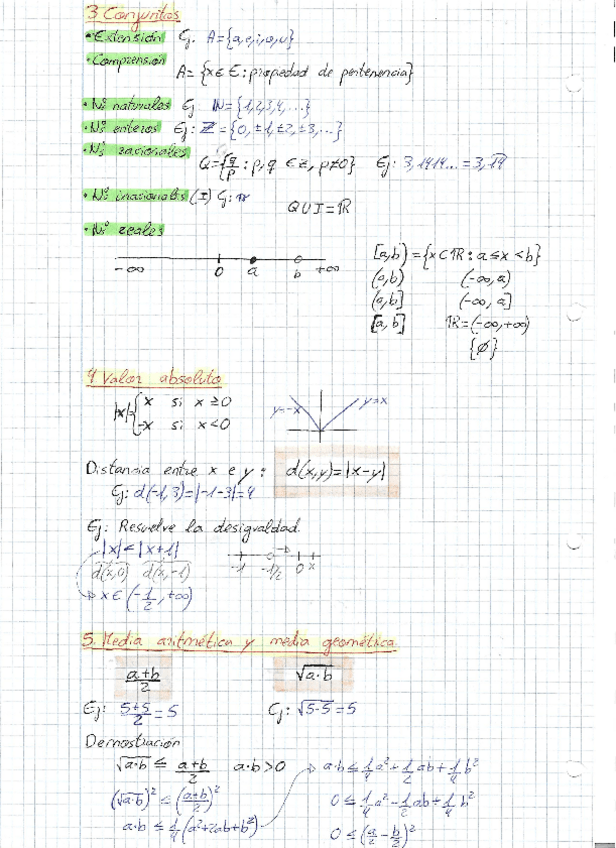 3 Conjuntos
• Extensión Ej. A={a,e,i,o,u}
• Comprensión
A={x∈E: propiedad de pertenencia}
• Nº naturales Ej ℕ={1,2,3,4,...}
• Nº enteros Ej: ℤ={0,±1,±2,±3,...}
• Nº racionales
Q={q/p : p,q ∈ z, p≠0} Ej: 3,1414...=3,14
• Nº irracionales (I) Ej: π
Q U I = ℝ
• Nº reales
-∞ 0 a b +∞
[a,b) = {x⊂ℝ: a≤x<b}
(a,b) (-∞,a)
(a,b] (-∞,a]
[a,b] ℝ=(-∞,+∞)
{∅}
4 Valor absoluto
|x|={x si x≥0
-x si x<0
y=-x y=x
Distancia entre x e y: d(x,y)=|x-y|
Ej: d(-1,3)=|-1-3|=4
Ej: Resuelve la desigualdad.
|x|<|x+1|
-1 -1/2 0 x
d(x,0) d(x,-1)
x∈(-1/2,+∞)
5. Media aritmética y media geométrica
a+b/2 √a·b
Ej: 5+5/2=5 Ej: √5·5=5
Demostración
√a·b ≤ a+b/2 a·b>0
(√a·b)² ≤ (a+b/2)²
a·b ≤ 1/4(a²+2ab+b²)
a·b ≤ 1/4a²+1/2ab+1/4b²
0 ≤ 1/4a²-1/2ab+1/4b²
0 ≤ (a/2-b/2)²